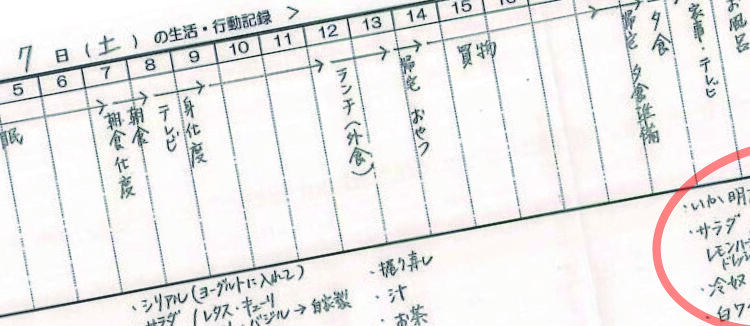 7日(土)の生活・行動記録 >
5 6 7 8 9 10 11 12 13 14 15 16
眠
朝食仕度
朝食
テレビ
身仕度
ランチ(外食)
帰宅 おやつ
買物
帰宅 夕食準備
夕食
家事・テレビ
お風呂
・シリアル(ヨーグルトに入れて)
サラダ(レタス・キューリ
バジル→自家製
・握り寿し
・汁
・お茶
・いか明
・サラダ
レモンハ
ドレッ
・冷奴
・白ワ